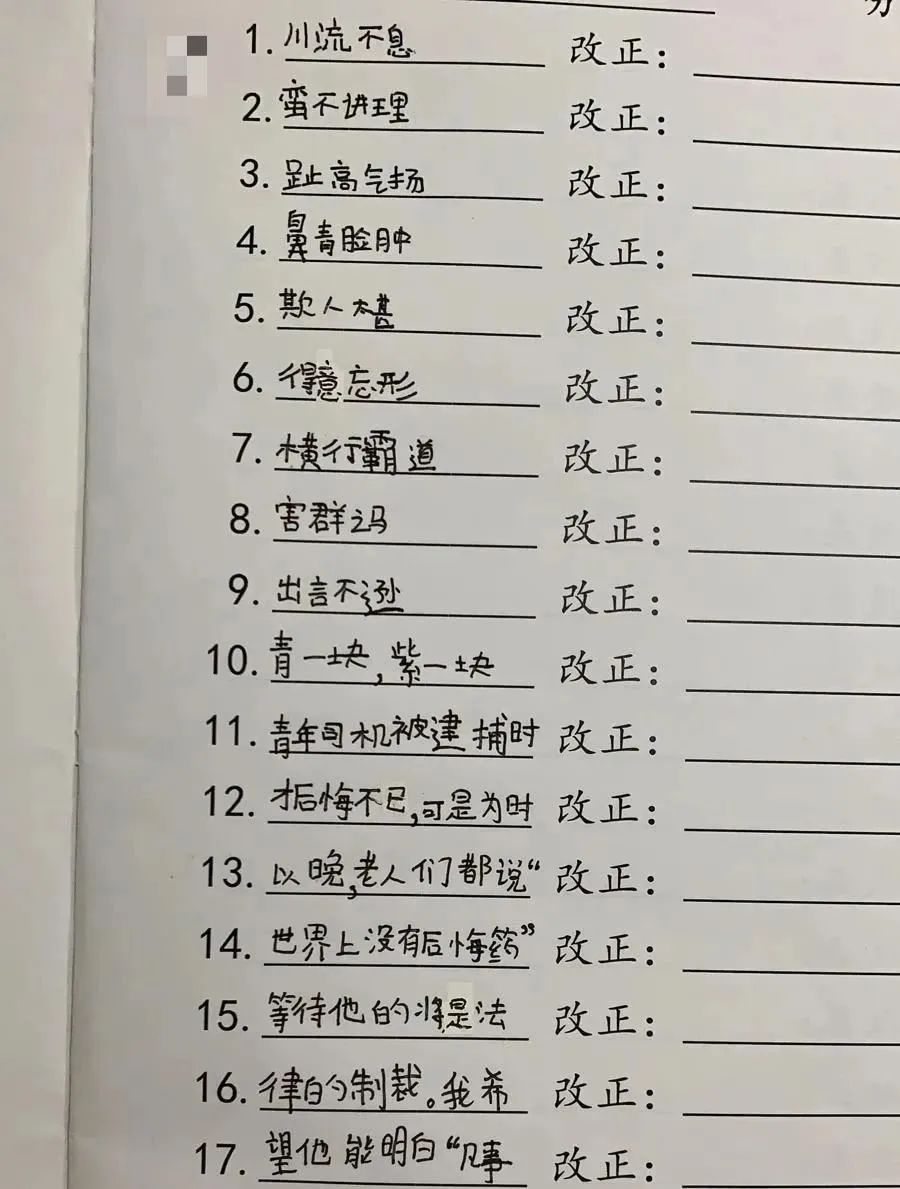 分
1. 川流不息 改正：
2. 蛮不讲理 改正：
3. 趾高气扬 改正：
4. 鼻青脸肿 改正：
5. 欺人太甚 改正：
6. 得意忘形 改正：
7. 横行霸道 改正：
8. 害群之马 改正：
9. 出言不逊 改正：
10. 青一块,紫一块 改正：
11. 青年司机被逮捕时 改正：
12. 才后悔不已,可是为时 改正：
13. 以晚,老人们都说“ 改正：
14. 世界上没有后悔药” 改正：
15. 等待他的将是法 改正：
16. 律的制裁。我希 改正：
17. 望他能明白“凡事 改正：